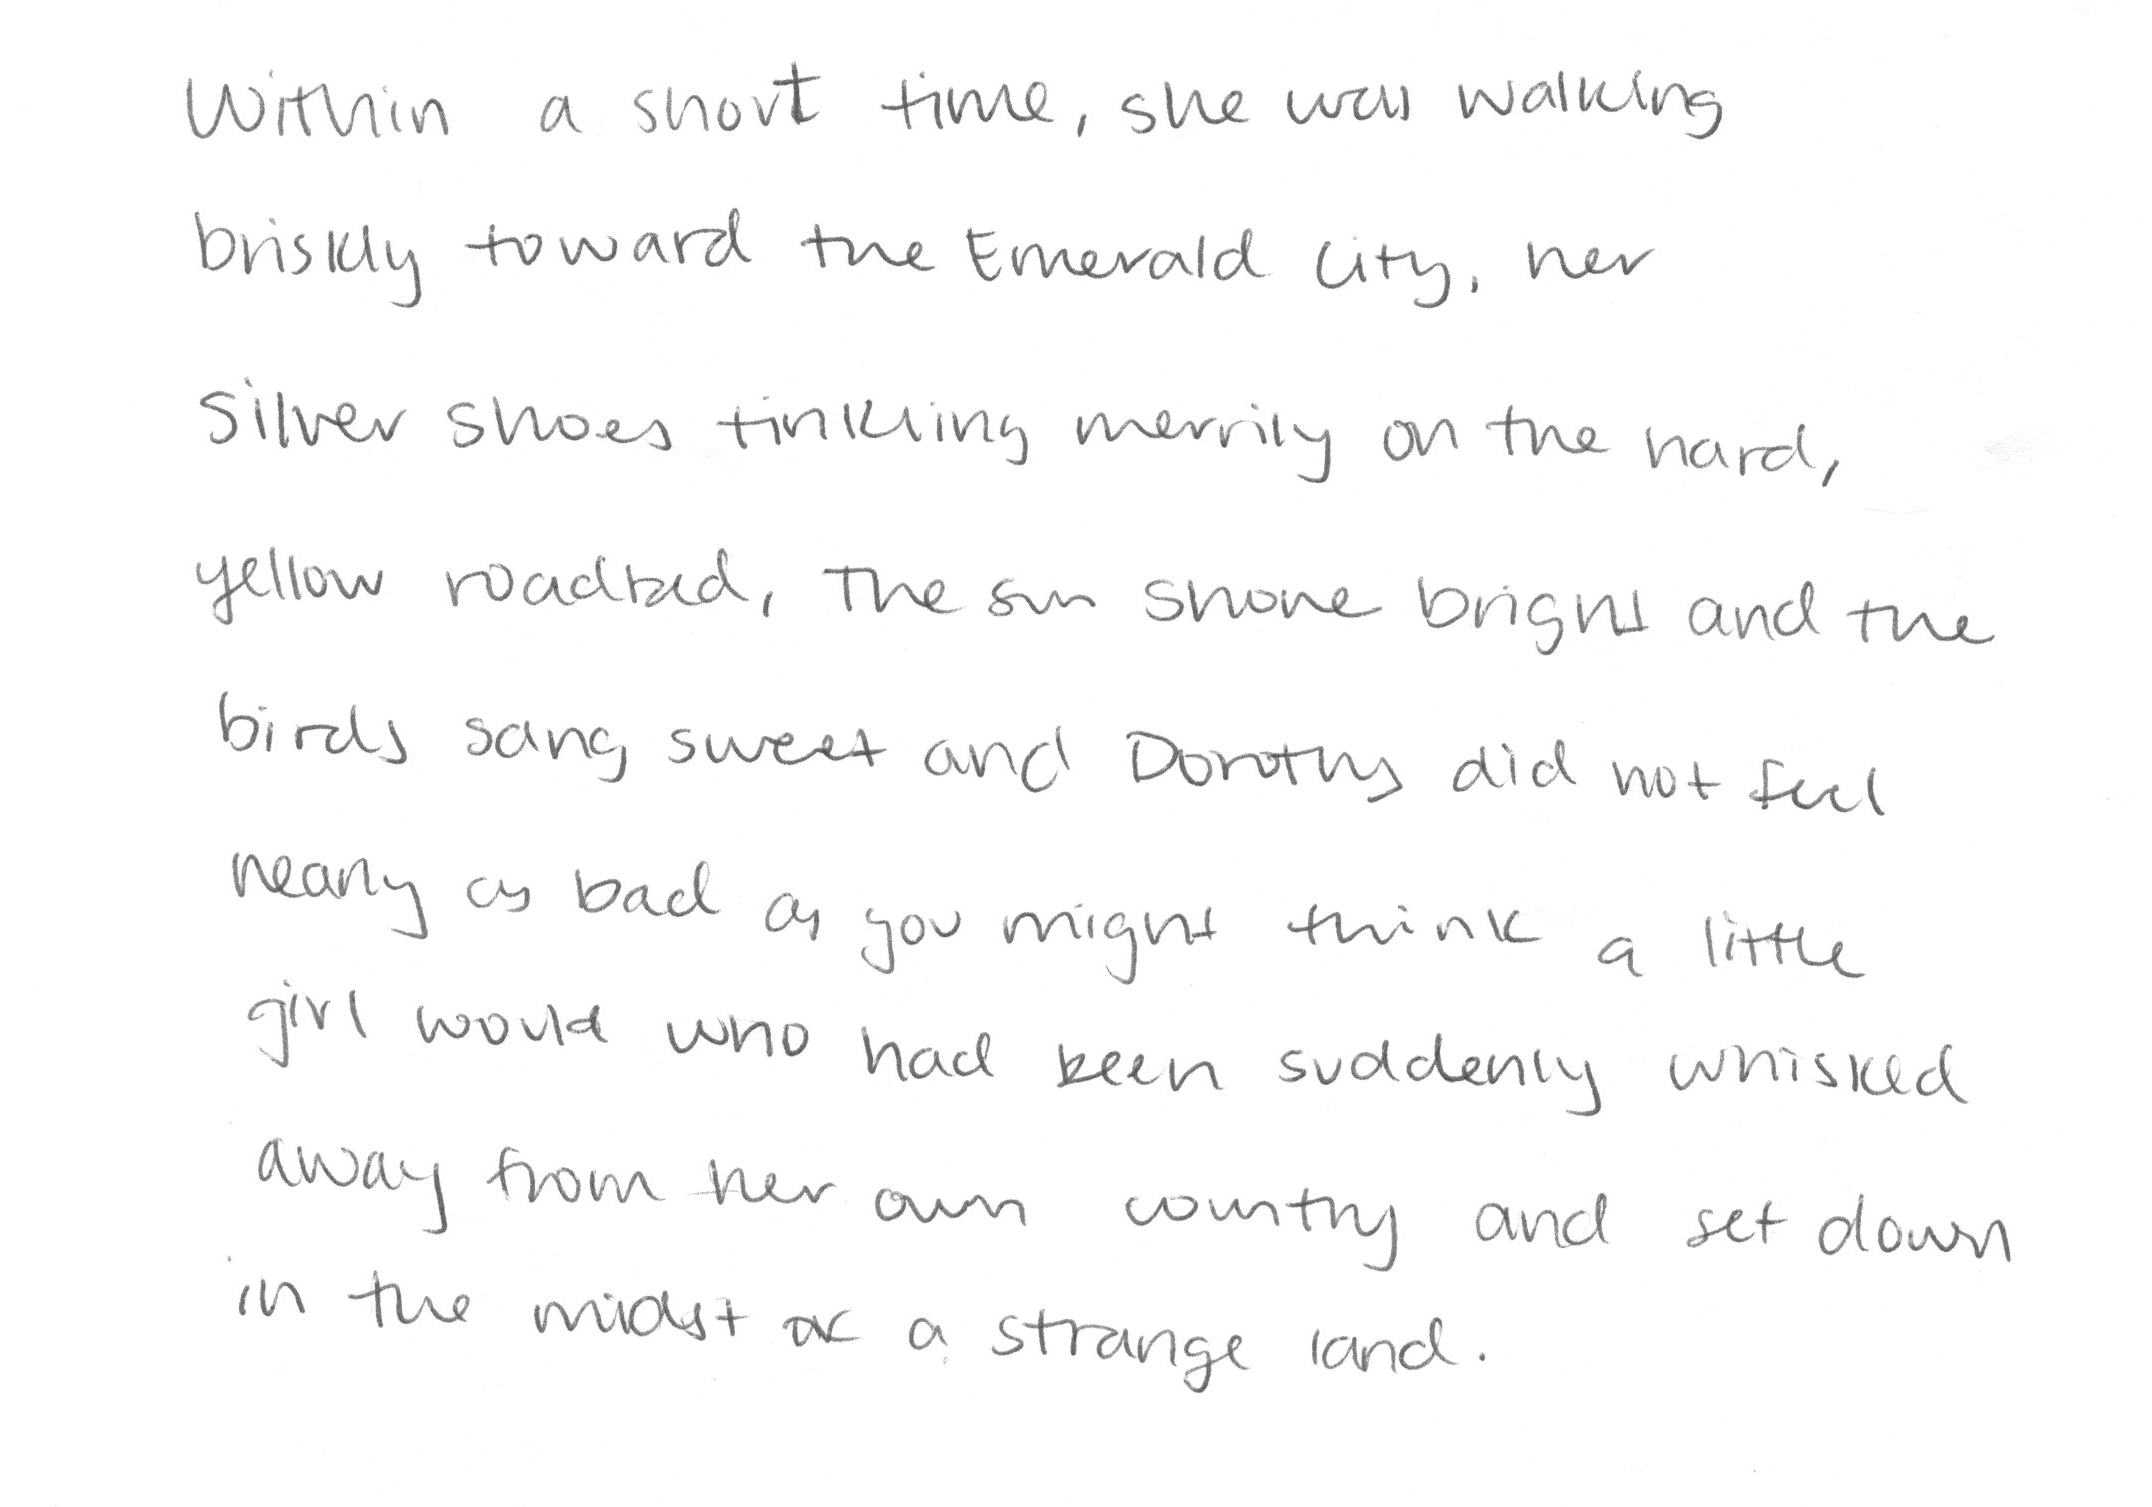 Within a short time, she was walking
briskly toward the Emerald City, her
Silver Shoes tinkling merrily on the hard,
yellow roadbed, The sun shone bright and the
birds sang sweet and Dorothy did not feel
nearly as bad as you might think a little
girl would who had been suddenly whisked
away from her own country and set down
in the midst of a strange land.